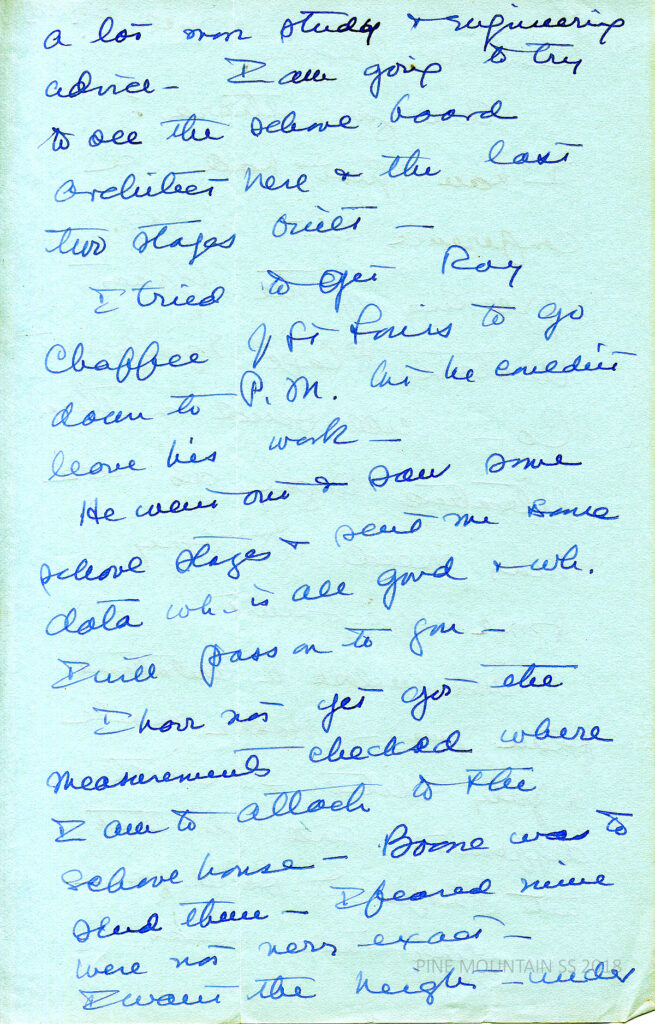 a lot more study & engineering
advice — I am going to try
to see the school board
architect here & the last
two stages built —
I tried to get Roy
Chaffee of St Louis to go
down to P. M. but he couldn't
leave his work —
He went out & saw some
school stages & sent me some
data wh. is all good & wh.
I will pass on to you —
I have not yet got the
measurements checked where
I am to attach to the
school house — Boone was to
send them — I feared mine
were not very exact —
I want the height — under
PINE MOUNTAIN SS 2018